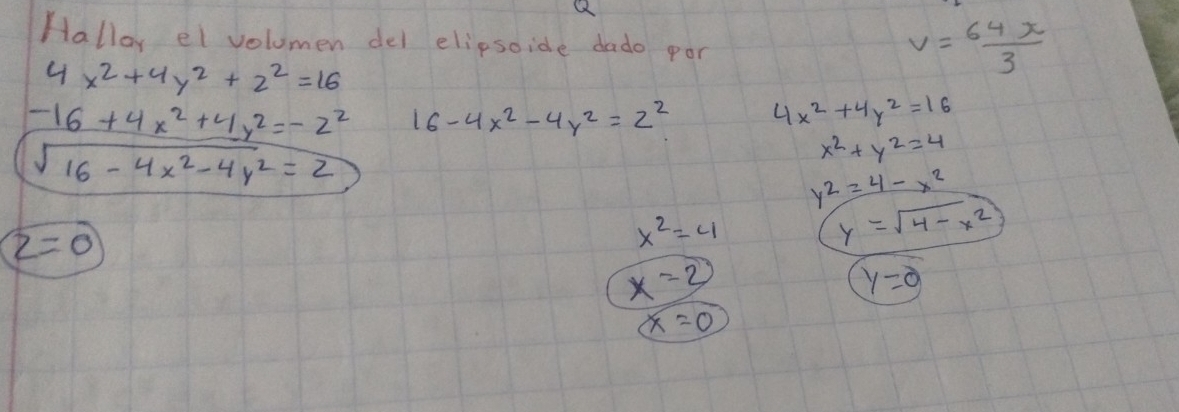 Q
Hallar el volumen del elipsoide dado por
v = 64 x / 3
4x² + 4y² + z² = 16
-16 + 4x² + 4y² = - z²
16 - 4x² - 4y² = z²
4x² + 4y² = 16
√16 - 4x² - 4y² = z
x² + y² = 4
y² = 4 - x²
z = 0
x² = 4
y = √4 - x²
x = 2
y = 0
x = 0